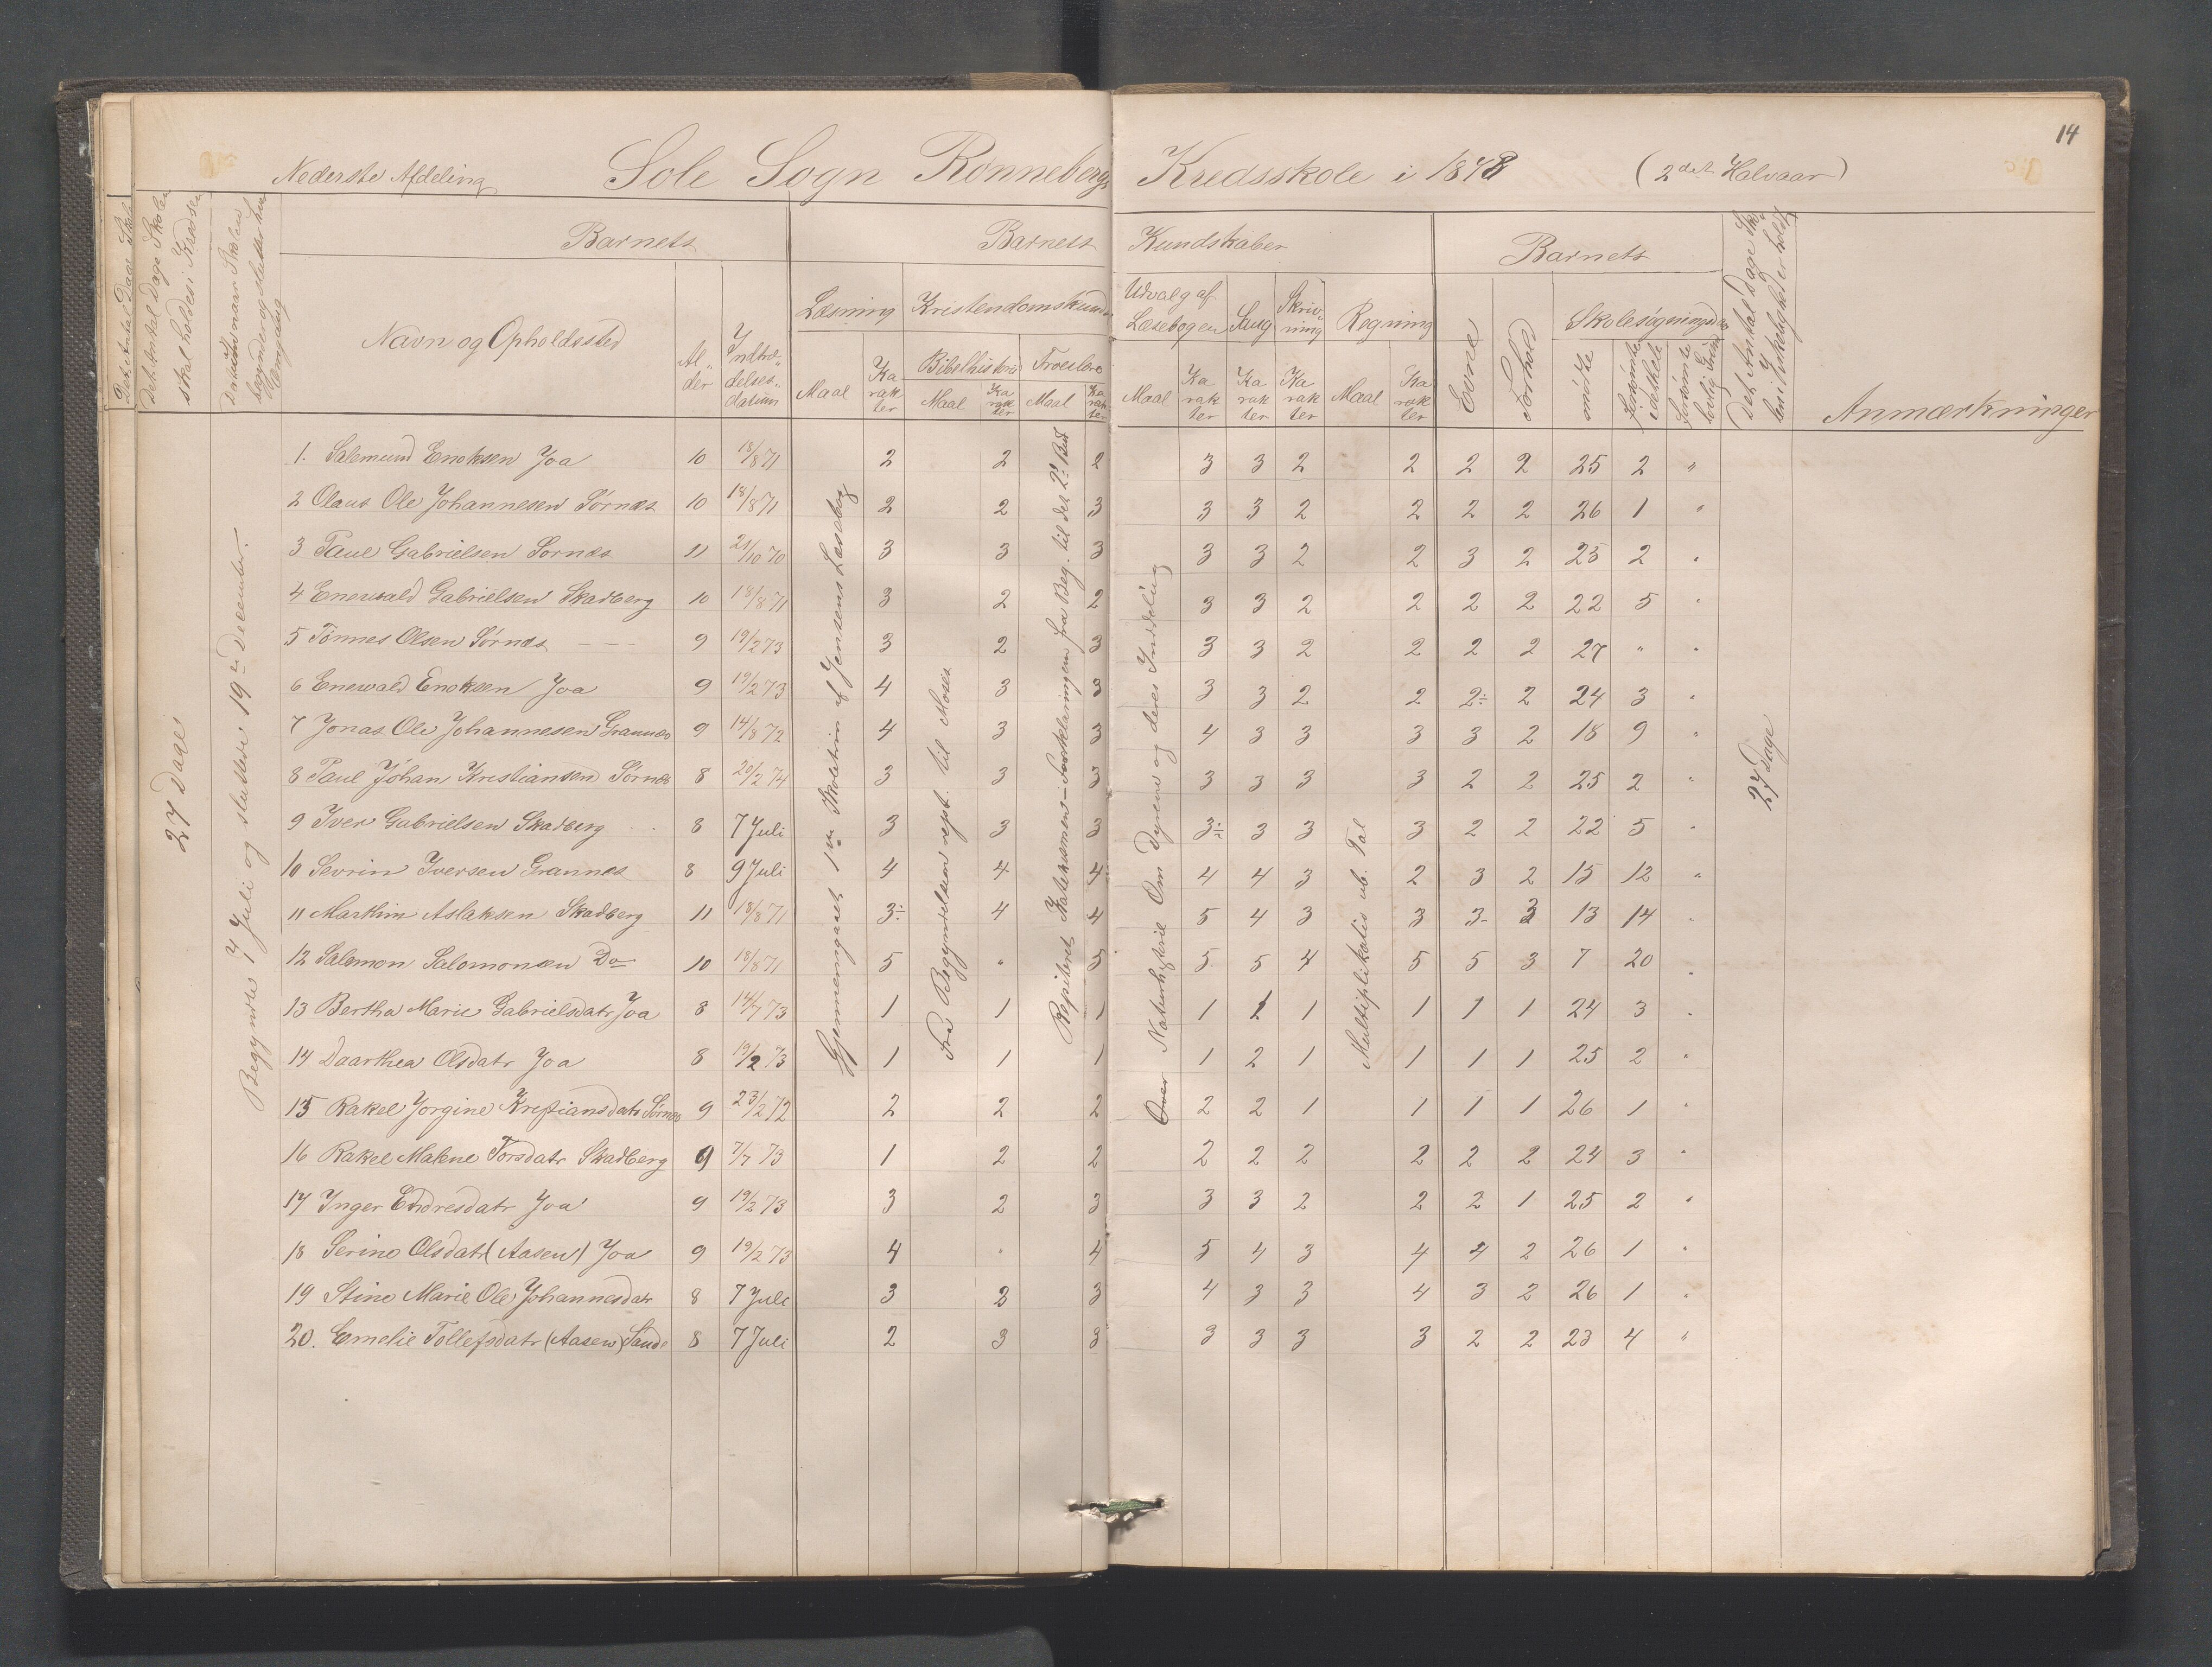 14
Nederste Afdeling Sole Sogn Rønnebergs Kredsskole i 1873 (2det Halvaar)
Det Antal Dage Skolen skal holdes i Kredsen
Datum naar Skolen begynder og slutter hver Omgang
Barnets
Navn og Opholdssted
Al-der
Indtrædelses-datum
Barnets Kundskaber
Læsning
Maal
Karakter
Kristendomskundskab
Bibelhistorie
Maal
Karakter
Troeslære
Maal
Karakter
Udvalg af Læsebogen
Maal
Karakter
Sang
Karakter
Skrivning
Karakter
Regning
Maal
Karakter
Barnets
Evne
Forhold
Skolesøgningsdage
mødte
forsømte i det hele
forsømte lovlig Grund
Det Antal Dage Skolen i Virkeligheden er holdt
Anmærkninger
27 Dage
Begyndtes 7 Juli og sluttede 19de December.
Gjennemgaaet 1ste Skoletrin af Jensens Læsebog
Fra Begyndelsen rept. til Moses
Repiteret Katekismens-Forklaringen fra Beg. til det 2det Bud
Over Naturhistorie Om Dyrene og deres Inddeling
Multiplikatis ub. Tal
27 Dage
1. Salemund Enoksen Joa 10 18/8 71 2 2 2 3 3 2 2 2 2 25 2 "
2 Olaus Ole Johannesen Sørnæs 10 18/8 71 2 2 3 3 3 2 2 2 2 26 1 "
3 Paul Gabrielsen Sørnæs 11 21/10 70 3 3 3 3 3 2 2 3 2 25 2 "
4 Enewald Gabrielsen Skadberg 10 18/8 71 3 2 2 3 3 2 2 2 2 22 5 "
5 Tönnes Olsen Sørnæs 9 19/2 73 3 2 3 3 3 2 2 2 2 27 " "
6 Enewald Enoksen Joa 9 19/2 73 4 3 3 3 3 2 2 2÷ 2 24 3 "
7 Jonas Ole Johannesen Grannæs 9 14/8 72 4 3 3 4 3 3 3 3 2 18 9 "
8 Paul Johan Kristiansen Sørnæs 8 20/2 74 3 3 3 3 3 3 3 2 2 25 2 "
9 Iver Gabrielsen Skadberg 8 7 Juli 3 3 3 3÷ 3 3 3 2 2 22 5 "
10 Sevrin Iversen Grannes 8 9 Juli 4 4 4 4 4 3 2 3 2 15 12 "
11 Marthin Aslaksen Skadberg 11 18/8 71 3÷ 4 4 5 4 3 3 3- 3 13 14 "
12 Salomon Salomonsen Do 10 18/8 71 5 " 5 5 5 4 5 5 3 7 20 "
13 Bertha Marie Gabrielsdatr Joa 8 14/7 73 1 1 1 1 2 1 1 1 1 24 3 "
14 Daarthea Olsdatr Joa 8 19/2 73 1 1 1 1 2 1 1 1 1 25 2 "
15 Rakel Jorgine Kristiansdatr Sørnæs 9 23/2 72 2 2 2 2 2 1 1 1 1 26 1 "
16 Rakel Malene Torsdatr Skadberg 9 7/7 73 1 2 2 2 2 2 2 2 2 24 3 "
17 Inger Endresdatr Joa 9 19/2 73 3 2 3 3 3 2 2 2 1 25 2 "
18 Serine Olsdatr (Aasen) Joa 9 19/2 73 4 " 4 5 4 3 4 4 2 26 1 "
19 Stine Marie Ole Johannesdatr 8 7 Juli 3 3 3 4 3 3 4 3 2 26 1 "
20. Emelie Tollefsdatr (Aasen) Sande 8 7 Juli 2 3 3 3 3 3 3 2 2 23 4 "